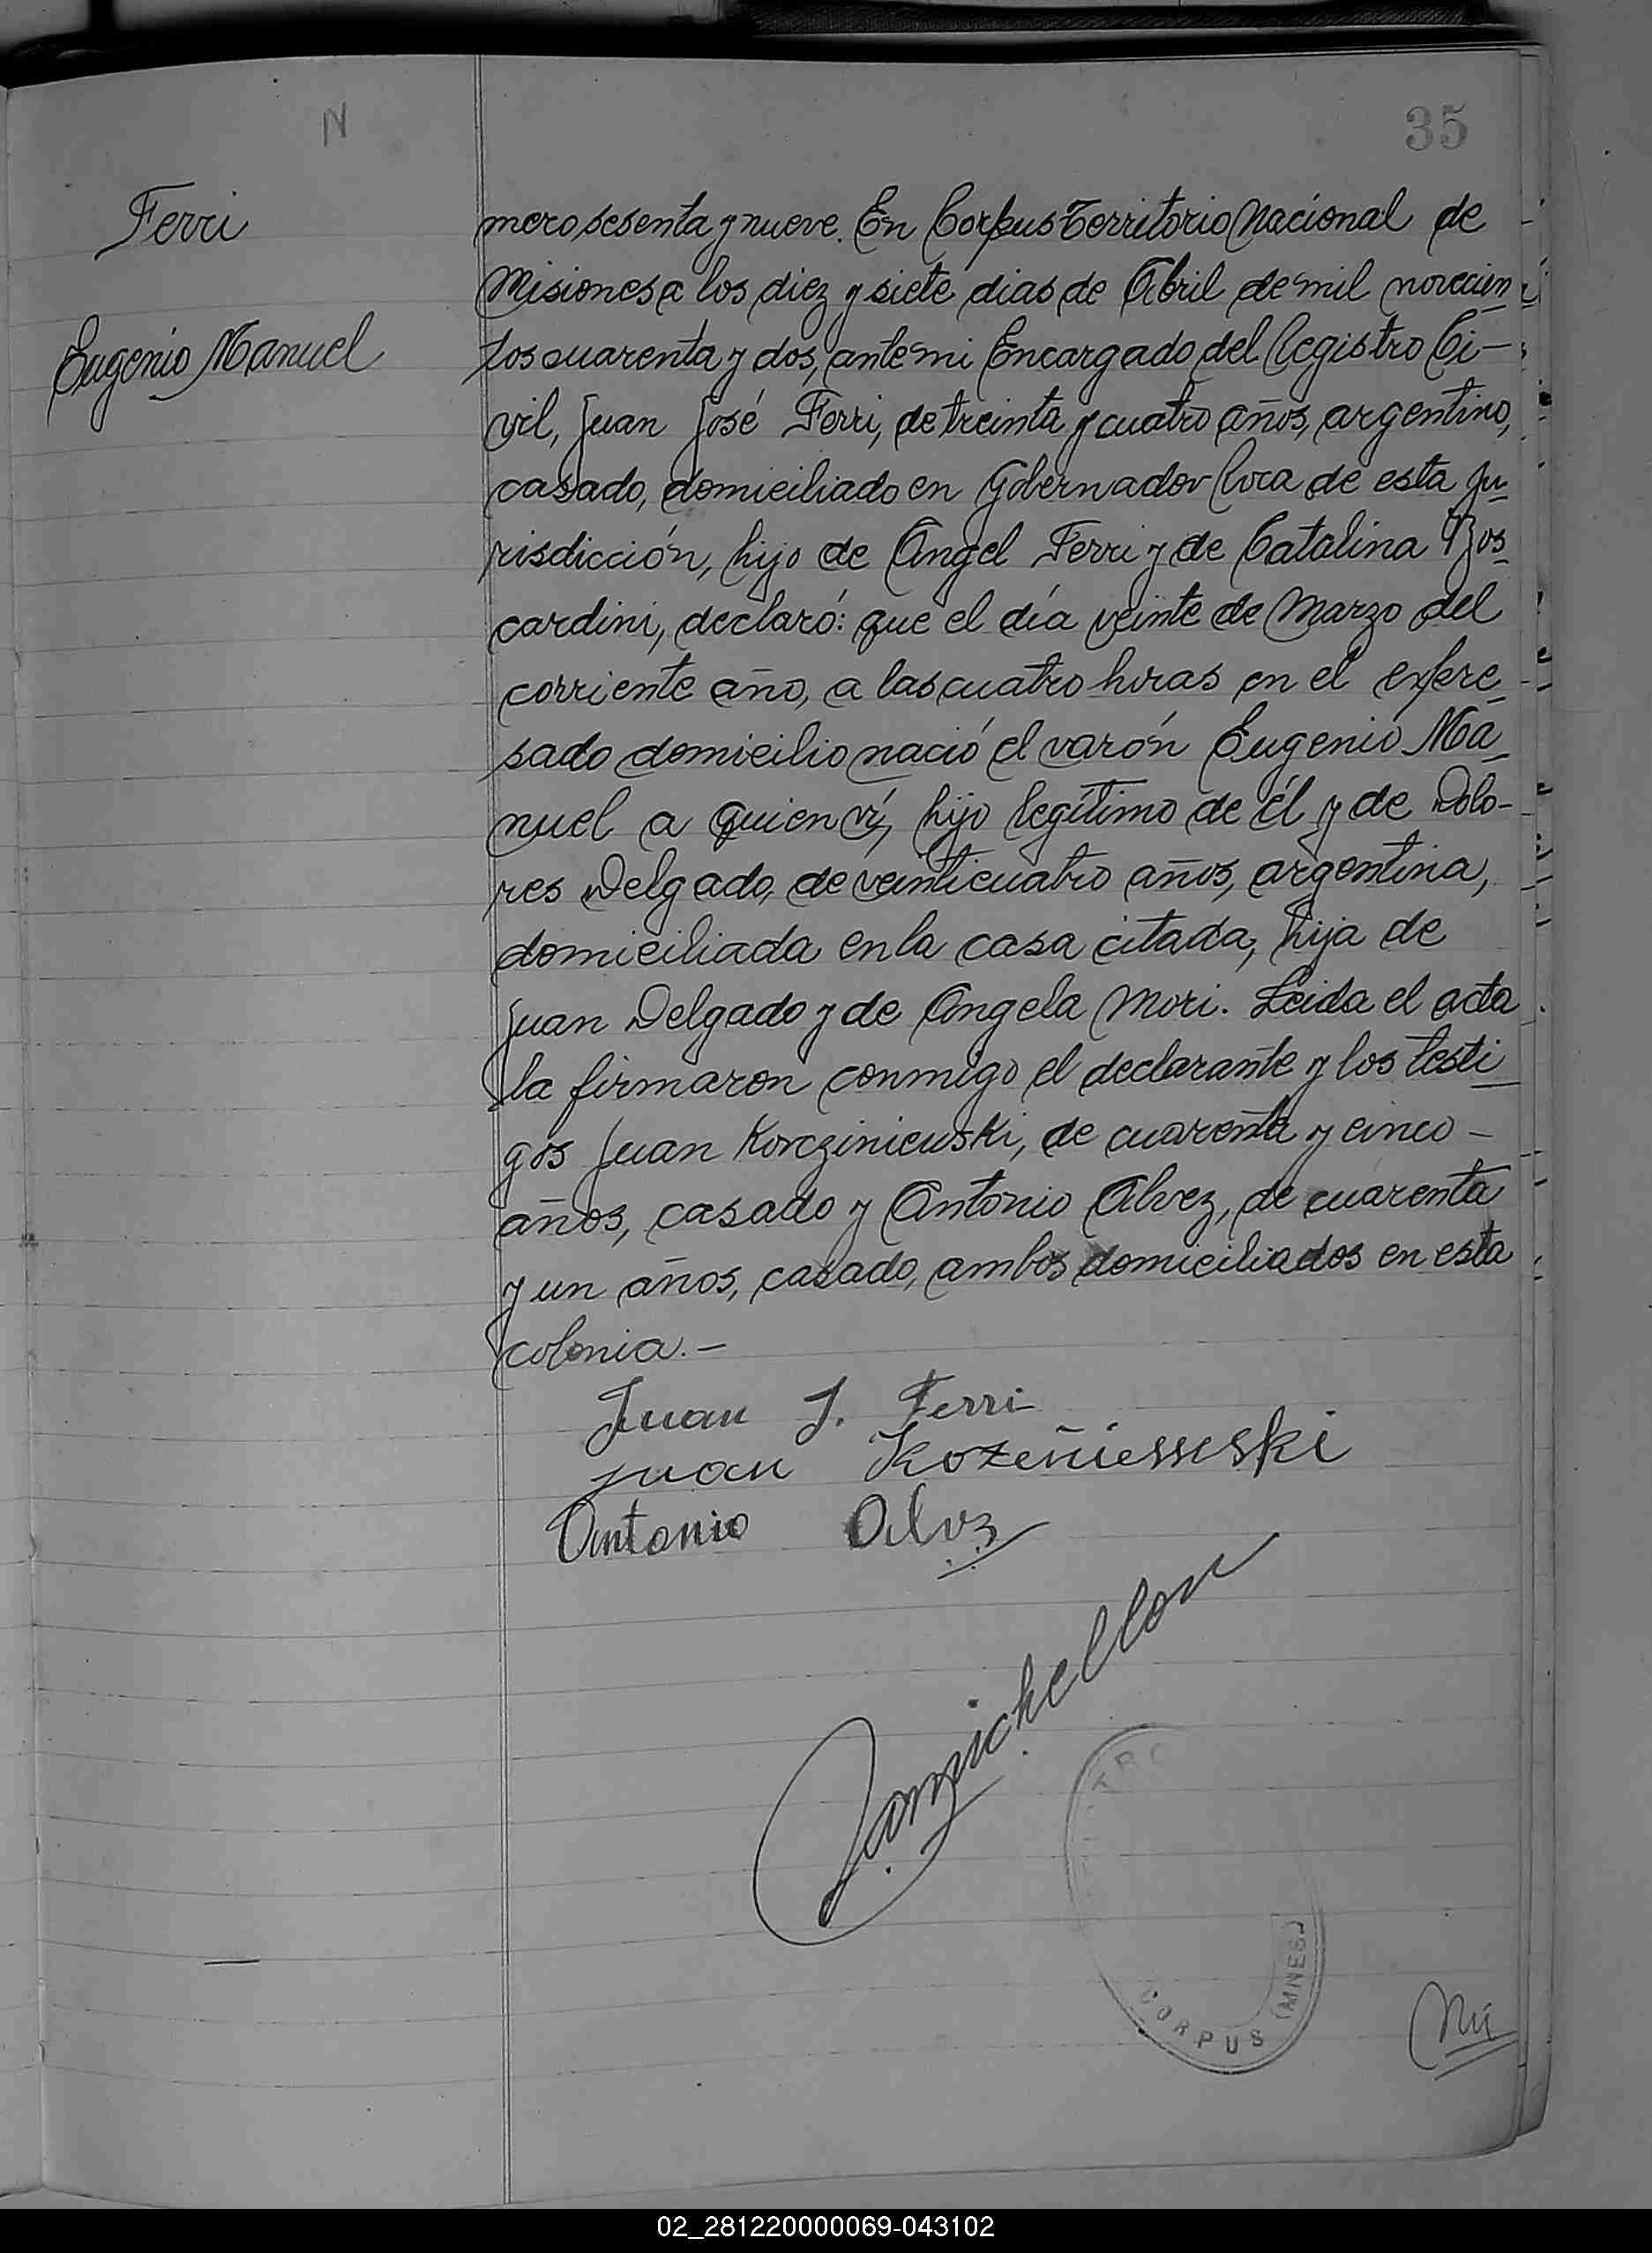 N
35
Ferri
Eugenio Manuel
mero sesenta y nueve. En Corpus Territorio Nacional de
Misiones a los diez y siete dias de Abril de mil novecien
tos cuarenta y dos, ante mi Encargado del Registro Ci-
vil, Juan José Ferri, de treinta y cuatro años, argentino,
casado, domiciliado en Gobernador Roca de esta ju
risdicción, hijo de Angel Ferri y de Catalina Bos
cardini, declaró: que el día veinte de Marzo del
corriente año, a las cuatro horas en el expre
sado domicilio nació el varón Eugenio Ma
nuel a quien ví, hijo legítimo de él y de Dolo-
res Delgado, de veinticuatro años, argentina,
domiciliada en la casa citada, hija de
Juan Delgado y de Angela Mori. Leida el acta
la firmaron conmigo el declarante y los testi
gos Juan Korcziniewski, de cuarenta y cinco -
años, casado y Antonio Alvez, de cuarenta
y un años, casado, ambos domiciliados en esta
colonia. -
Juan J. Ferri
Juan Kozeñiewski
Antonio Alvz
CORPUS (MNES.)
Nú
02_281220000069-043102